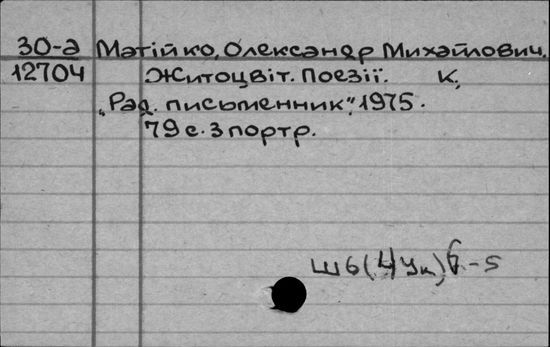 30-д Матійко, Олександр Михайлович.
12704 Житоцвіт. Поезії. К,
„Рад. письменник", 1975.
79 с. з портр.
Ш6(4Ук)6-5